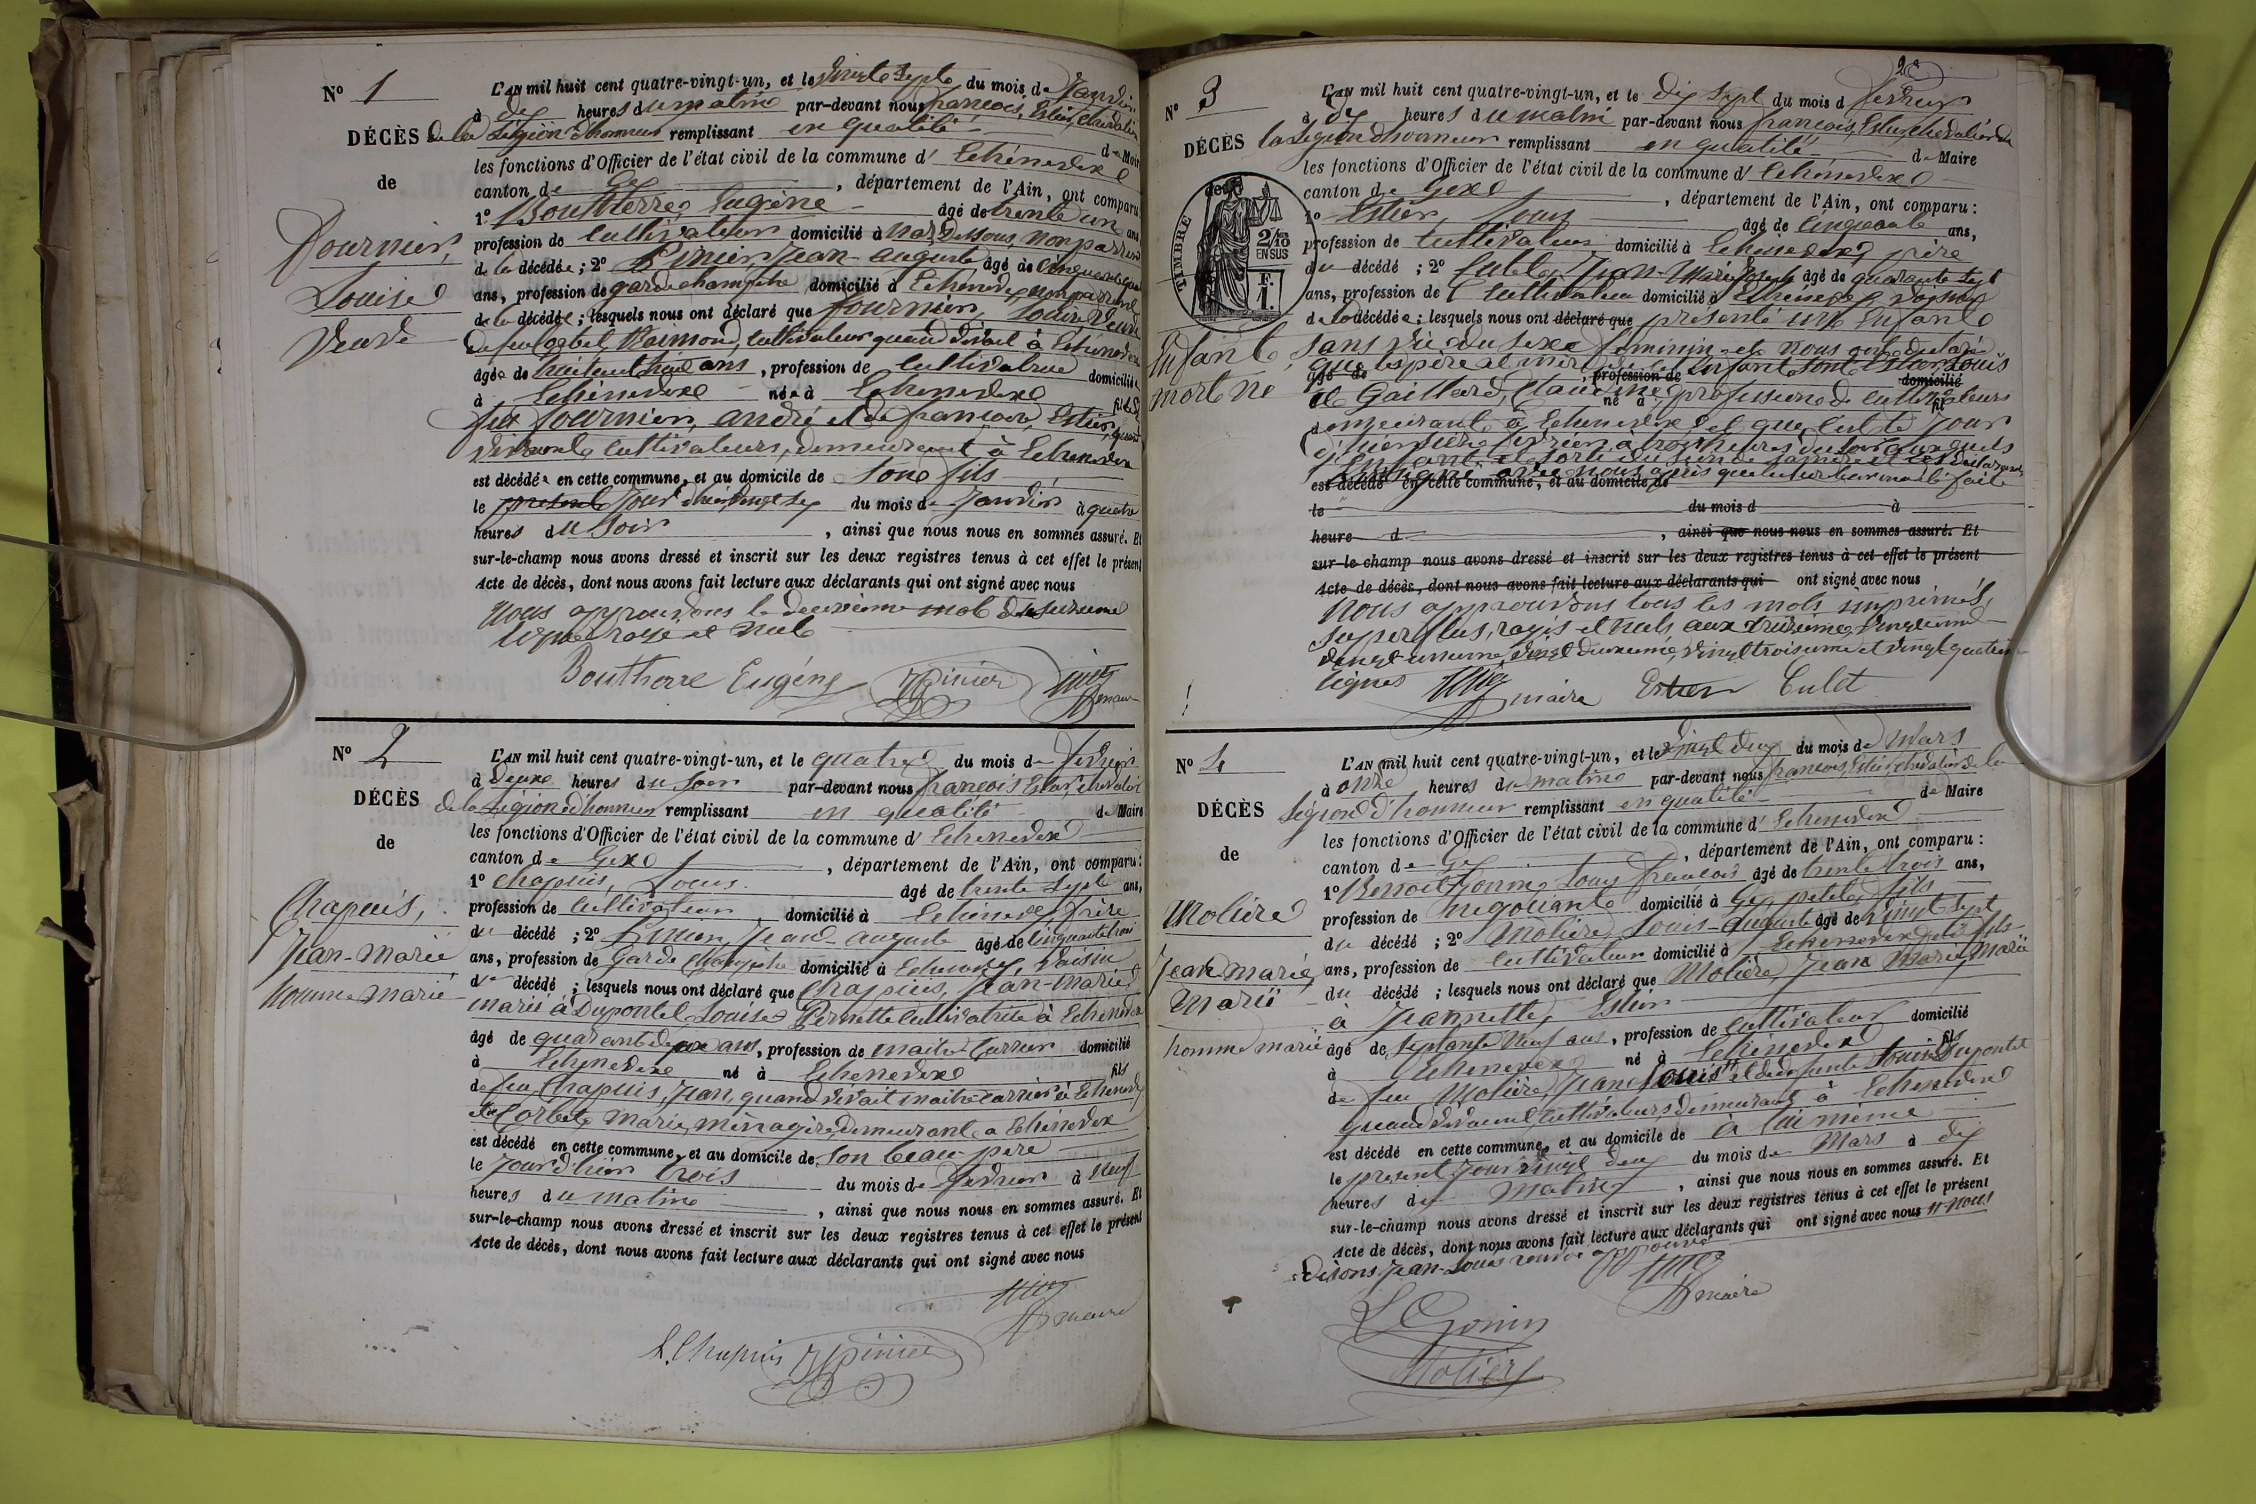 N° 1
DÉCÈS
de
Fournier,
Louise
Veuve
L'AN mil huit cent quatre-vingt-un, et le vingt sept du mois de Janvier
à dix heures du matin par-devant nous françois, Estier, chevalier
de la Légion d'honneur remplissant en qualité de Maire
les fonctions d'Officier de l'état civil de la commune d' Echenevex
canton de Gex, département de l'Ain, ont comparu
1° Boutherre, Eugène âgé de trente un ans
profession de cultivateur domicilié à non parent
de la décédée ; 2° Pinier Jean-auguste âgé de
ans, profession de garde champêtre domicilié à Echenevex non parent
de la décédée ; lesquels nous ont déclaré que fournier, Louise Veuve
de feu Raimond, cultivateur quand vivait à Echenevex
âgée de ans, profession de cultivatrice domiciliée
à Echenevex née à Echenevex fille de
feu fournier, andré et de françoise, Estier, quand
vivaient cultivateurs, demeurant à Echenevex
est décédée en cette commune, et au domicile de son fils
le présent jour d'hier, vingt six du mois de Janvier à quatre
heures du soir, ainsi que nous nous en sommes assuré. Et
sur-le-champ nous avons dressé et inscrit sur les deux registres tenus à cet effet le présent
Acte de décès, dont nous avons fait lecture aux déclarants qui ont signé avec nous
Nous approuvons le deuxième mot
ligne rayé et nul
Boutherre Eugène JAPinier Estier
maire
N° 2
DÉCÈS
de
Chapuis,
Jean-Marie
homme Marié
L'AN mil huit cent quatre-vingt-un, et le quatre du mois de février
à deux heures du soir par-devant nous françois Estier, chevalier
de la Légion d'honneur remplissant en qualité de Maire
les fonctions d'Officier de l'état civil de la commune d' Echenevex
canton de Gex, département de l'Ain, ont comparu :
1° Chapuis, Louis âgé de trente sept ans,
profession de cultivateur domicilié à Echenevex, frère
du décédé ; 2° Pinier, Jean-auguste âgé de cinquante trois
ans, profession de Garde Champêtre domicilié à Echenevex, voisin
du décédé ; lesquels nous ont déclaré que Chapuis, Jean-Marie
marié à Dupontel Louise Pernette cultivatrice à Echenevex
âgé de quarante deux ans, profession de maître carrier domicilié
à Echenevex né à Echenevex fils
de feu Chapuis, Jean, quand vivait maître carrier à Echenevex
et de Corbet Marie, ménagère, demeurant à Echenevex
est décédé en cette commune, et au domicile de son beau-père
le jour d'hier trois du mois de février à neuf
heures du matin, ainsi que nous nous en sommes assuré. Et
sur-le-champ nous avons dressé et inscrit sur les deux registres tenus à cet effet le présent
Acte de décès, dont nous avons fait lecture aux déclarants qui ont signé avec nous
Estier
maire
L. Chapuis JAPinier
2
N° 3
DÉCÈS
de
TIMBRE
2/10
EN SUS
F.
1.
Enfant
mort né
L'AN mil huit cent quatre-vingt-un, et le dix sept du mois d février
à dix heures du matin par-devant nous françois, Estier, chevalier de
la Légion d'honneur remplissant en qualité de Maire
les fonctions d'Officier de l'état civil de la commune d' Echenevex
canton de Gex, département de l'Ain, ont comparu :
1° Estier, Louis âgé de cinquante ans,
profession de cultivateur domicilié à Echenevex, père
du décédé ; 2° Culet, Jean-Marie Joseph âgé de quarante sept
ans, profession de cultivateur domicilié à Echenevex voisin
de la décédée ; lesquels nous ont déclaré que présenté un Enfant
sans vie du sexe féminin et nous ont déclaré
que les père et mère de l'enfant sont Estier, Louis
et Gaillard, Claudine, profession de cultivateurs
demeurant à Echenevex et que cet
d'hier seize février à trois heures du soir
l'enfant est sorti du sein de sa mère et les déclarants
ont signé avec nous après que lecture leur en a été faite
est décédé en cette commune, et au domicile de
le du mois d à
heure d , ainsi que nous nous en sommes assuré. Et
sur-le-champ nous avons dressé et inscrit sur les deux registres tenus à cet effet le présent
Acte de décès, dont nous avons fait lecture aux déclarants qui ont signé avec nous
Nous approuvons tous les mots imprimés,
superflus, rayés et nuls aux treizième, vingtième
vingt unième, vingt deuxième, vingt troisième et vingt quatrième
lignes Estier maire Estier Culet
N° 4
DÉCÈS
de
Molière
Jean marie,
Marié
homme marié
L'AN mil huit cent quatre-vingt-un, et le vingt deux du mois de Mars
à onze heures du matin par-devant nous françois, Estier, chevalier de la
Légion d'honneur remplissant en qualité de Maire
les fonctions d'Officier de l'état civil de la commune d' Echenevex
canton de Gex, département de l'Ain, ont comparu :
1° Benoit Gonin, Louis françois âgé de trente trois ans,
profession de négociant domicilié à Gex, petit fils
du décédé ; 2° Molière, Louis-Auguste âgé de vingt sept
ans, profession de cultivateur domicilié à Echenevex petit fils
du décédé ; lesquels nous ont déclaré que Molière, Jean Marie, Marié
à Jeannette, Estier
âgé de septante neuf ans, profession de cultivateur domicilié
à Echenevex né à Echenevex fils
de feu Molière, Jean Louis et de défunte Louise Dupontet
quand vivaient cultivateurs demeurant à Echenevex
est décédé en cette commune, et au domicile de à lui même
le présent jour vingt deux du mois de Mars à dix
heures du Matin, ainsi que nous nous en sommes assuré. Et
sur-le-champ nous avons dressé et inscrit sur les deux registres tenus à cet effet le présent
Acte de décès, dont nous avons fait lecture aux déclarants qui ont signé avec nous "Nous
disons Jean-Louis renvoi approuvé
Estier
maire
L Gonin
Molière